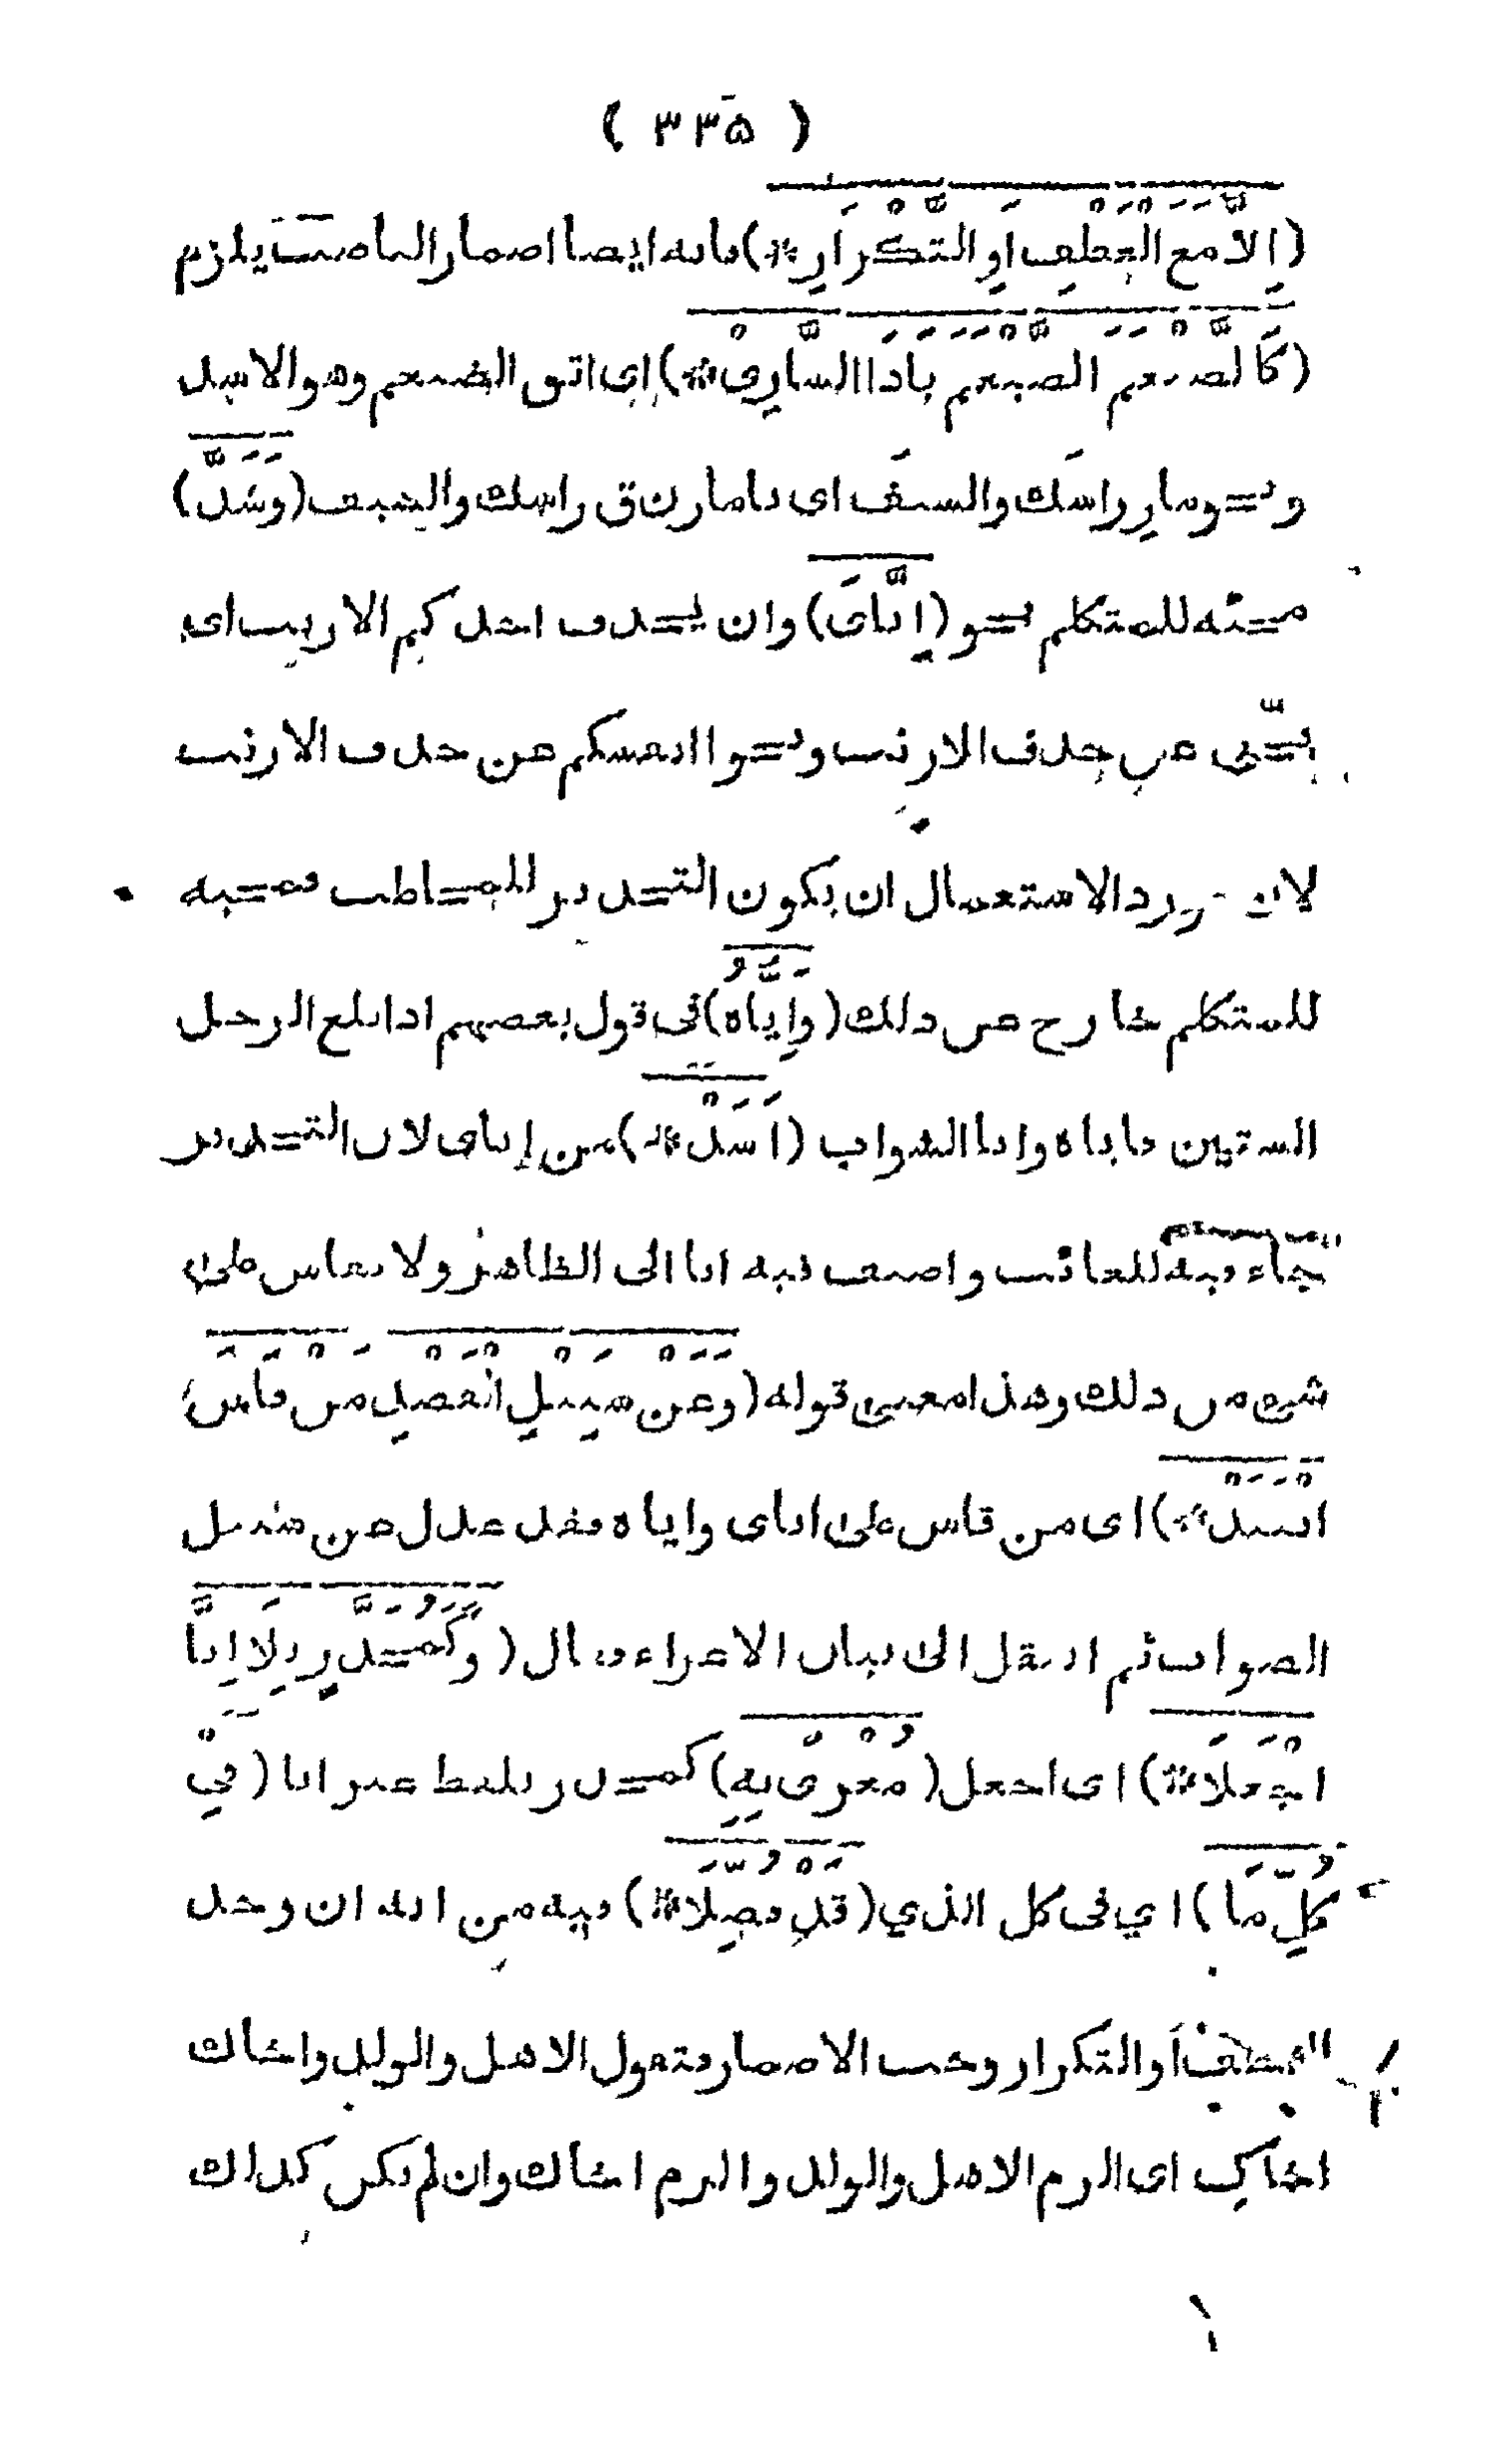 ( ٣٣٥ )
(إِلَّا مَعَ الْعَطْفِ اَوِ التَّكْرَارِ *) فانه ايضا اضمار الناصب يلزم
(كَالضَّيْغَمَ الضَّيْغَمَ يَاذَا السَّارِىْ *) اى اتق الضيغم وهو الاسد
و نحو ماز راسك والسيف اى يا مازن ق راسك والسيف (وَشَذَّ)
مجيئه للمتكلم نحو (إِيَّاىَ) وان يحذف احدكم الارنب اى
نحّنى عن حذف الارنب ونحوا انفسكم عن حذف الارنب
لان مورد الاستعمال ان يكون التحذير للمخاطب فمجيئه
للمتكلم خارج عن ذلك (وَإِيَّاهُ) فى قول بعضهم اذا بلغ الرجل
الستين فاياه وايا الشواب (اَشَذّ *) من إياى لان التحذير
جاء فيه للغائب واضيف فيه ايا الى الظاهر ولا يقاس على
شىء من ذلك وهذا معنى قوله (وَعَنْ سَبِيلِ الْقَصْدِ مَنْ قَاسَ
انْتَبَذْ *) اى من قاس على اياى واياه فقد عدل عن سبيل
الصواب ثم انتقل الى بيان الاغراء فقال (وَكَمُحَذَّرٍ بِلَا إِيَّا
اجْعَلَا *) اى اجعل (مُغْرًى بِهِ) كمحذر بلفظ غير ايا (فِيْ
كُلِّ مَا) اي فى كل الذي (قَدْ فُصِّلَا *) فيه من انه ان وجد
العطف او التكرار وجب الاضمار فتقول الاهل والولد واخاك
اخاك اى الزم الاهل والولد والزم اخاك وان لم يكن كذلك